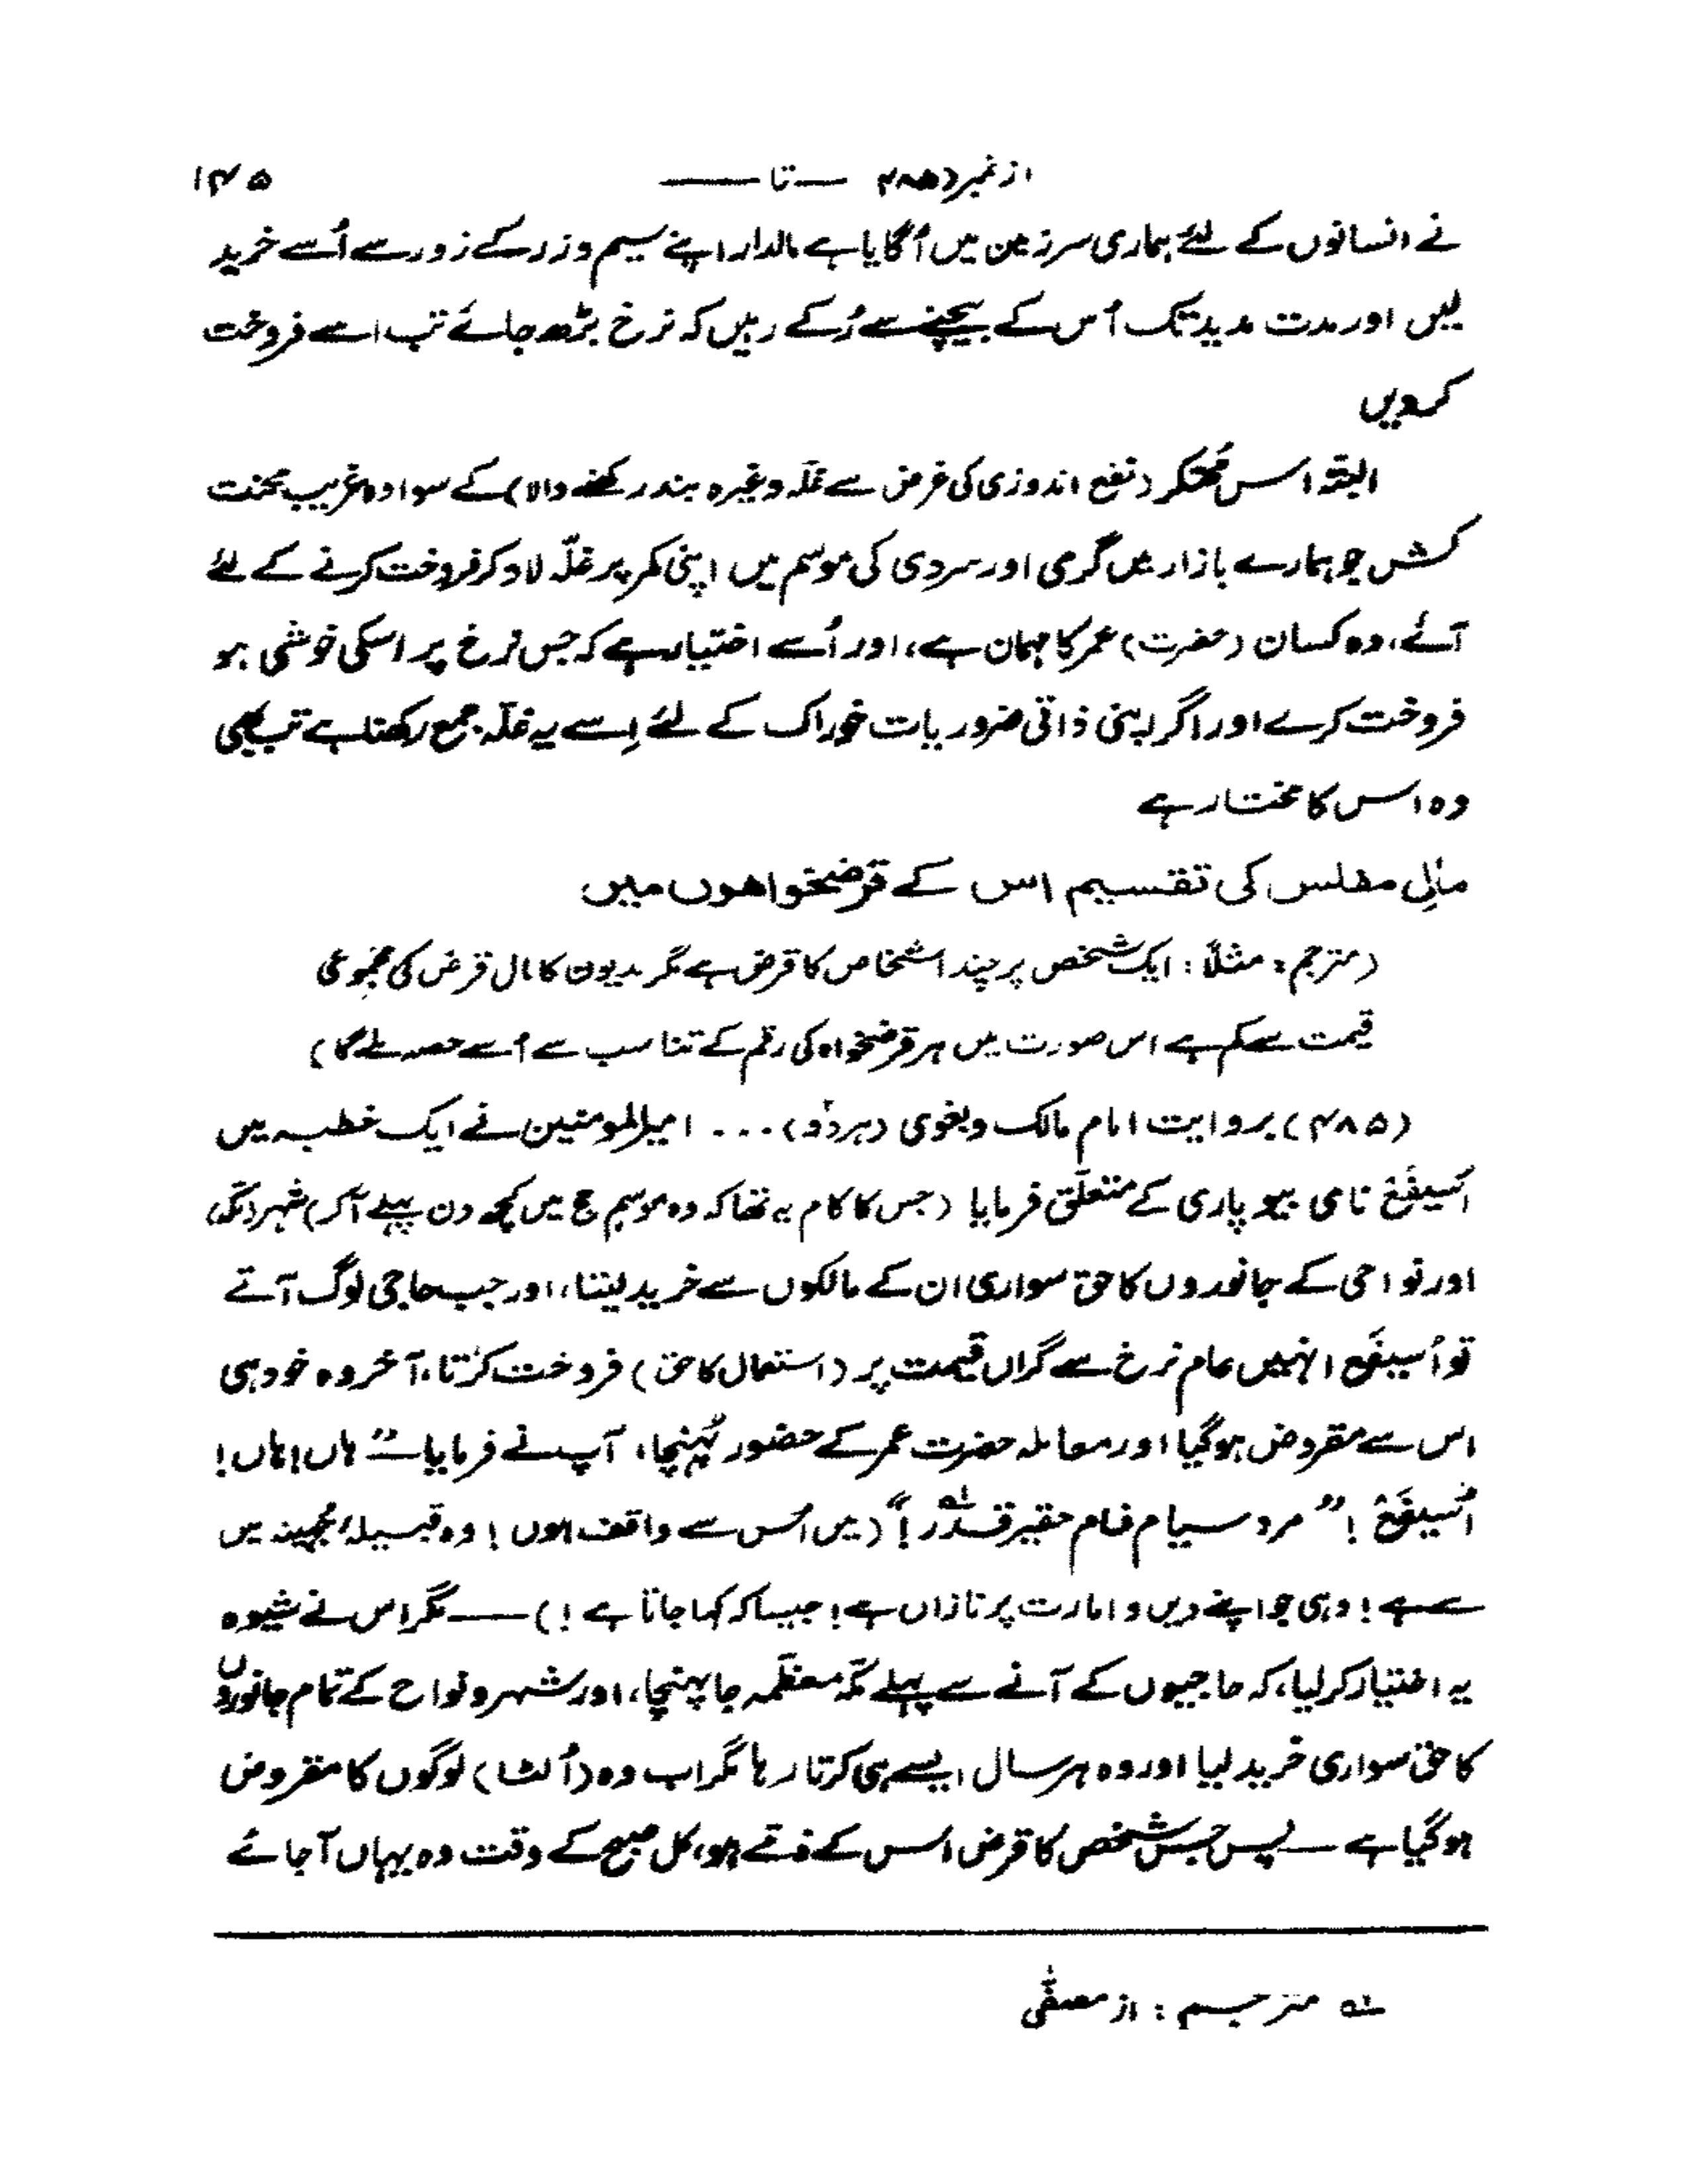 از نمبر (۴۸۵ — تا —— ۱۴۵
نے انسانوں کے لئے ہماری سرزمین میں اُگایا ہے مالدار اپنے سیم و زر کے زور سے اُسے خرید
لیں اور مدت مدید تک اُس کے بیچنے سے رُکے رہیں کہ نرخ بڑھ جائے تب اسے فروخت
کردیں
البتہ اس مُحتکر (نفع اندوزی کی غرض سے غلّہ وغیرہ بند رکھنے والا) کے سوا وہ غریب محنت
کش جو ہمارے بازار میں گرمی اور سردی کی موسم میں اپنی کمر پر غلّہ لاد کر فروخت کرنے کے لئے
آئے، وہ کسان (حضرت) عمر کا مہمان ہے، اور اُسے اختیار ہے کہ جس نرخ پر اسکی خوشی ہو
فروخت کرے اور اگر اپنی ذاتی ضروریات خوراک کے لئے اِسے یہ غلّہ جمع رکھتا ہے تب بھی
وہ اس کا مختار ہے
مالِ مفلس کی تقسیم اس کے قرضخواهوں میں
(مترجم: مثلاً: ایک شخص پر چند اشخاص کا قرض ہے مگر مدیون کا مال قرض کی مجموعی
قیمت سے کم ہے اس صورت میں ہر قرضخواہ کی رقم کے تناسب سے اُسے حصہ ملے گا)
(۴۸۵) بروایت امام مالک و بغوی (ہر دُو) ... امیرالمومنین نے ایک خطبہ میں
اُسیفَع نامی بیوپاری کے متعلّق فرمایا (جس کا کام یہ تھا کہ وہ موسم حج میں کچھ دن پہلے آکر) شہر (مکّہ)
اور نواحی کے جانوروں کا حق سواری ان کے مالکوں سے خرید لیتا، اور جب حاجی لوگ آتے
تو اُسیفَع انہیں عام نرخ سے گراں قیمت پر (استعمال کا حق) فروخت کرتا، آخر وہ خود ہی
اس سے مقروض ہوگیا اور معاملہ حضرت عمر کے حضور پُہنچا، آپ نے فرمایا — ”ہاں! ہاں!
اُسیفَع! ”مرد سیاہ فام حقیر قدر!“ (میں اُس سے واقف ہوں! وہ قبیلۂ جُہینہ میں
سے ہے! وہی جو اپنے دیں و امارت پر نازاں ہے! جیسا کہ کہا جاتا ہے!) —— مگر اس نے شیوہ
یہ اختیار کر لیا، کہ حاجیوں کے آنے سے پہلے مکّہ معظّمہ جا پہنچا، اور شہر و نواح کے تمام جانوروں
کا حق سواری خرید لیا اور وہ ہر سال ایسے ہی کرتا رہا مگر اب وہ (اُلٹا) لوگوں کا مقروض
ہوگیا ہے — پس جس شخص کا قرض اُس کے ذمّے ہو، کل صبح کے وقت وہ یہاں آجائے
لہ مترجم: از مصفّٰی